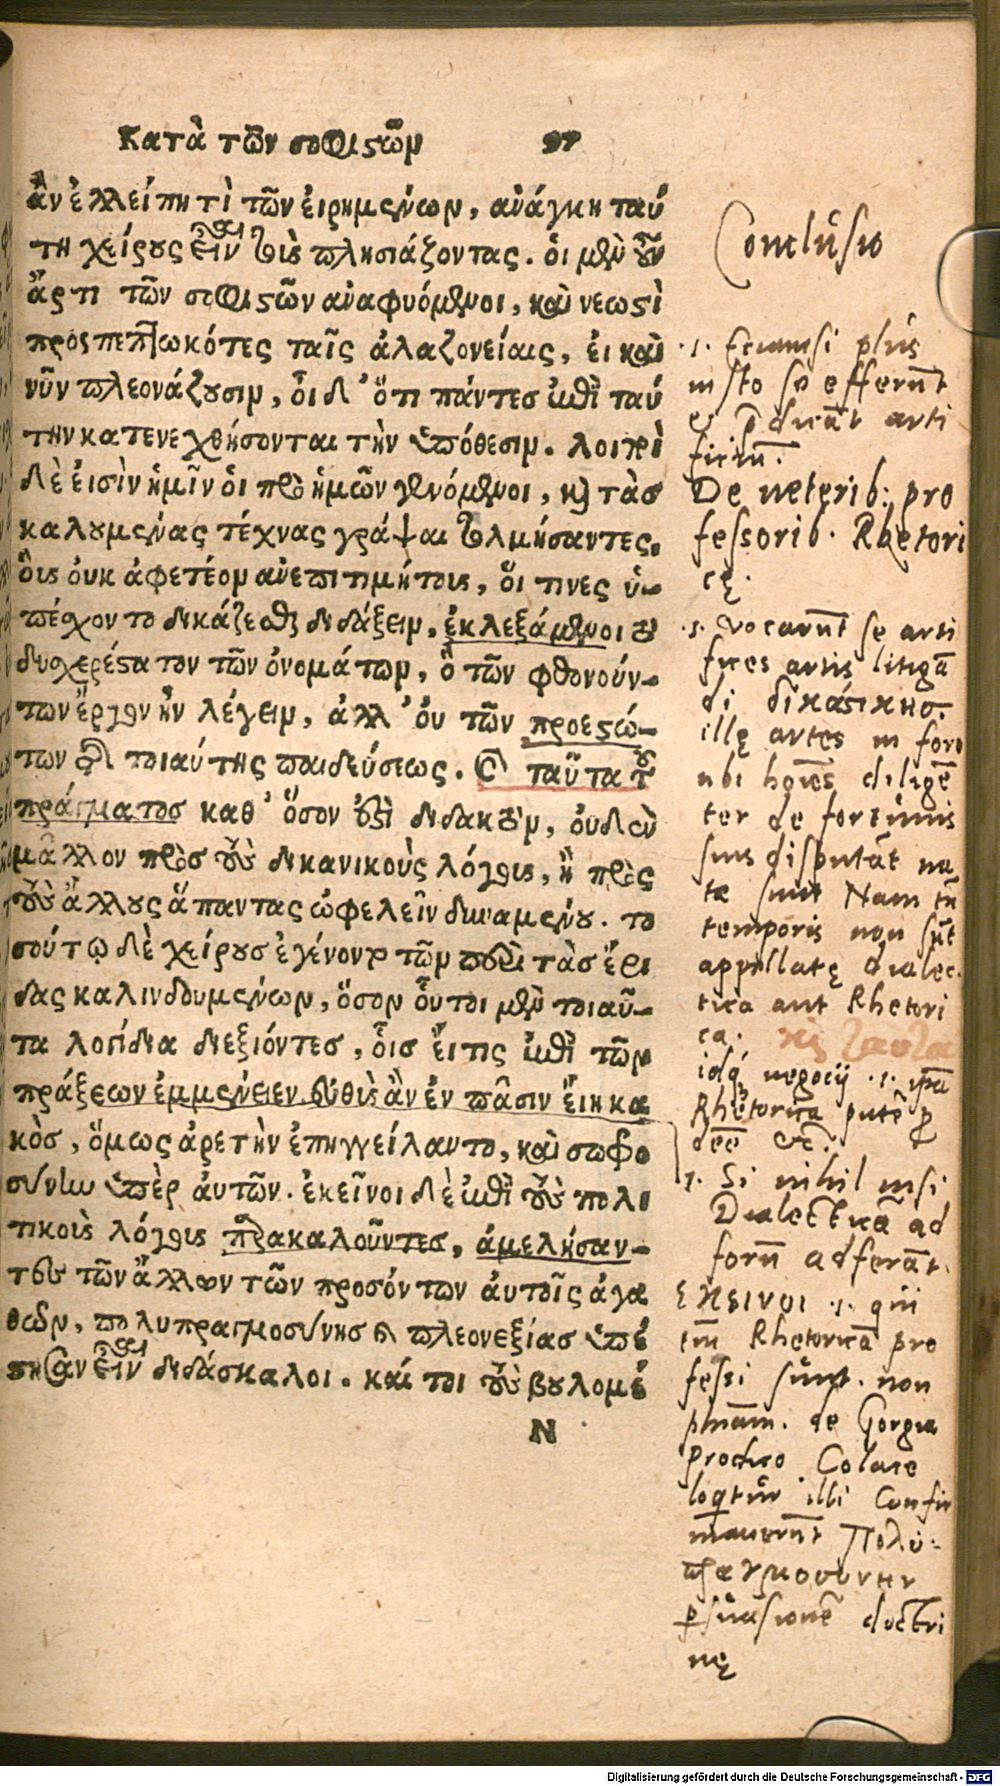 Κατὰ τῶν σοφιστῶν 97
ἂν ἐλλείπῃ τὶ τῶν εἰρημένων, ἀνάγκη ταύ
τῃ χείρους εἶν τοὺς πλησιάζοντας. οἱ μὲν οὖν
ἄρτι τῶν σοφιστῶν ἀναφυόμενοι, καὶ νεωστὶ
προσπεπτωκότες ταῖς ἀλαζονείαις, εἰ καὶ
νῦν πλεονάζουσιν, οἶδ' ὅτι πάντες ἐπὶ ταύ
την κατενεχθήσονται τὴν ὑπόθεσιν. λοιποὶ
δὲ εἰσὶν ἡμῖν οἱ πρὸ ἡμῶν γενόμενοι, καὶ τὰς
καλουμένας τέχνας γράψαι τολμήσαντες.
οἷς οὐκ ἀφετέον ἀνεπιτιμήτοις, οἵ τινες ὑ-
πέσχοντο δικάζεσθαι διδάξειν, ἐκλεξάμενοι τὸ
δυσχερέστατον τῶν ὀνομάτων, ὃ τῶν φθονούν-
των ἔργον ἦν λέγειν, ἀλλ' οὐ τῶν προεστώ-
των τῆς τοιαύτης παιδεύσεως. καὶ ταῦτα τοῦ
πράγματος καθ' ὅσον ἐστὶ διδακτὸν, οὐδὲν
μᾶλλον πρὸς τοὺς δικανικοὺς λόγους, ἢ πρὸς
τοὺς ἄλλους ἅπαντας ὠφελεῖν δυναμένου. το
σούτῳ δὲ χείρους ἐγένοντο τῶν περὶ τὰς ἔρι
δας καλινδουμένων, ὅσον οὗτοι μὲν τοιαῦ-
τα λογίδια διεξιόντες, οἷς εἴ τις ἐπὶ τῶν
πράξεων ἐμμένειεν εὐθὺς ἂν ἐν πᾶσιν εἴη κα
κὸς, ὅμως ἀρετὴν ἐπηγγείλαντο, καὶ σωφρο
σύνην ὑπὲρ αὐτῶν. ἐκεῖνοι δὲ ἐπὶ τοὺς πολι
τικοὺς λόγους παρακαλοῦντες, ἀμελήσαν-
τες τῶν ἄλλων τῶν προσόντων αὐτοῖς ἀγα
θῶν, πολυπραγμοσύνης καὶ πλεονεξίας ὑπέ
στησαν εἶν διδάσκαλοι. καί τοι τοὺς βουλομέ
N
Conclusio
.i. Etiamsi plus
in sto se efferunt
et praedicant arti
ficium.
De veterib: pro
fessorib. Rhetori
cę.
.s. vocarunt se arti
fices artis litigan
di δικάσικησ.
illę artes in foro
ubi homines diligen
ter de fortunis
suis disputant na
tę sunt Nam tum
temporis non sunt
appellatę dialec
tica aut Rhetori
ca. καὶ ταῦτα
idque negocij .i. ipsa
Rhetorica
.i. Si nihil nisi
Dialecticam ad
forum adferant.
ἐκεῖνοι .i. qui
tum Rhetoricam pro
fessi sunt. non
de Gorgia
Prodico
loquitur illi Confir
maverunt πολυ-
πραγμοσυνην
persuasionem doctri
nę
Digitalisierung gefördert durch die Deutsche Forschungsgemeinschaft - DFG